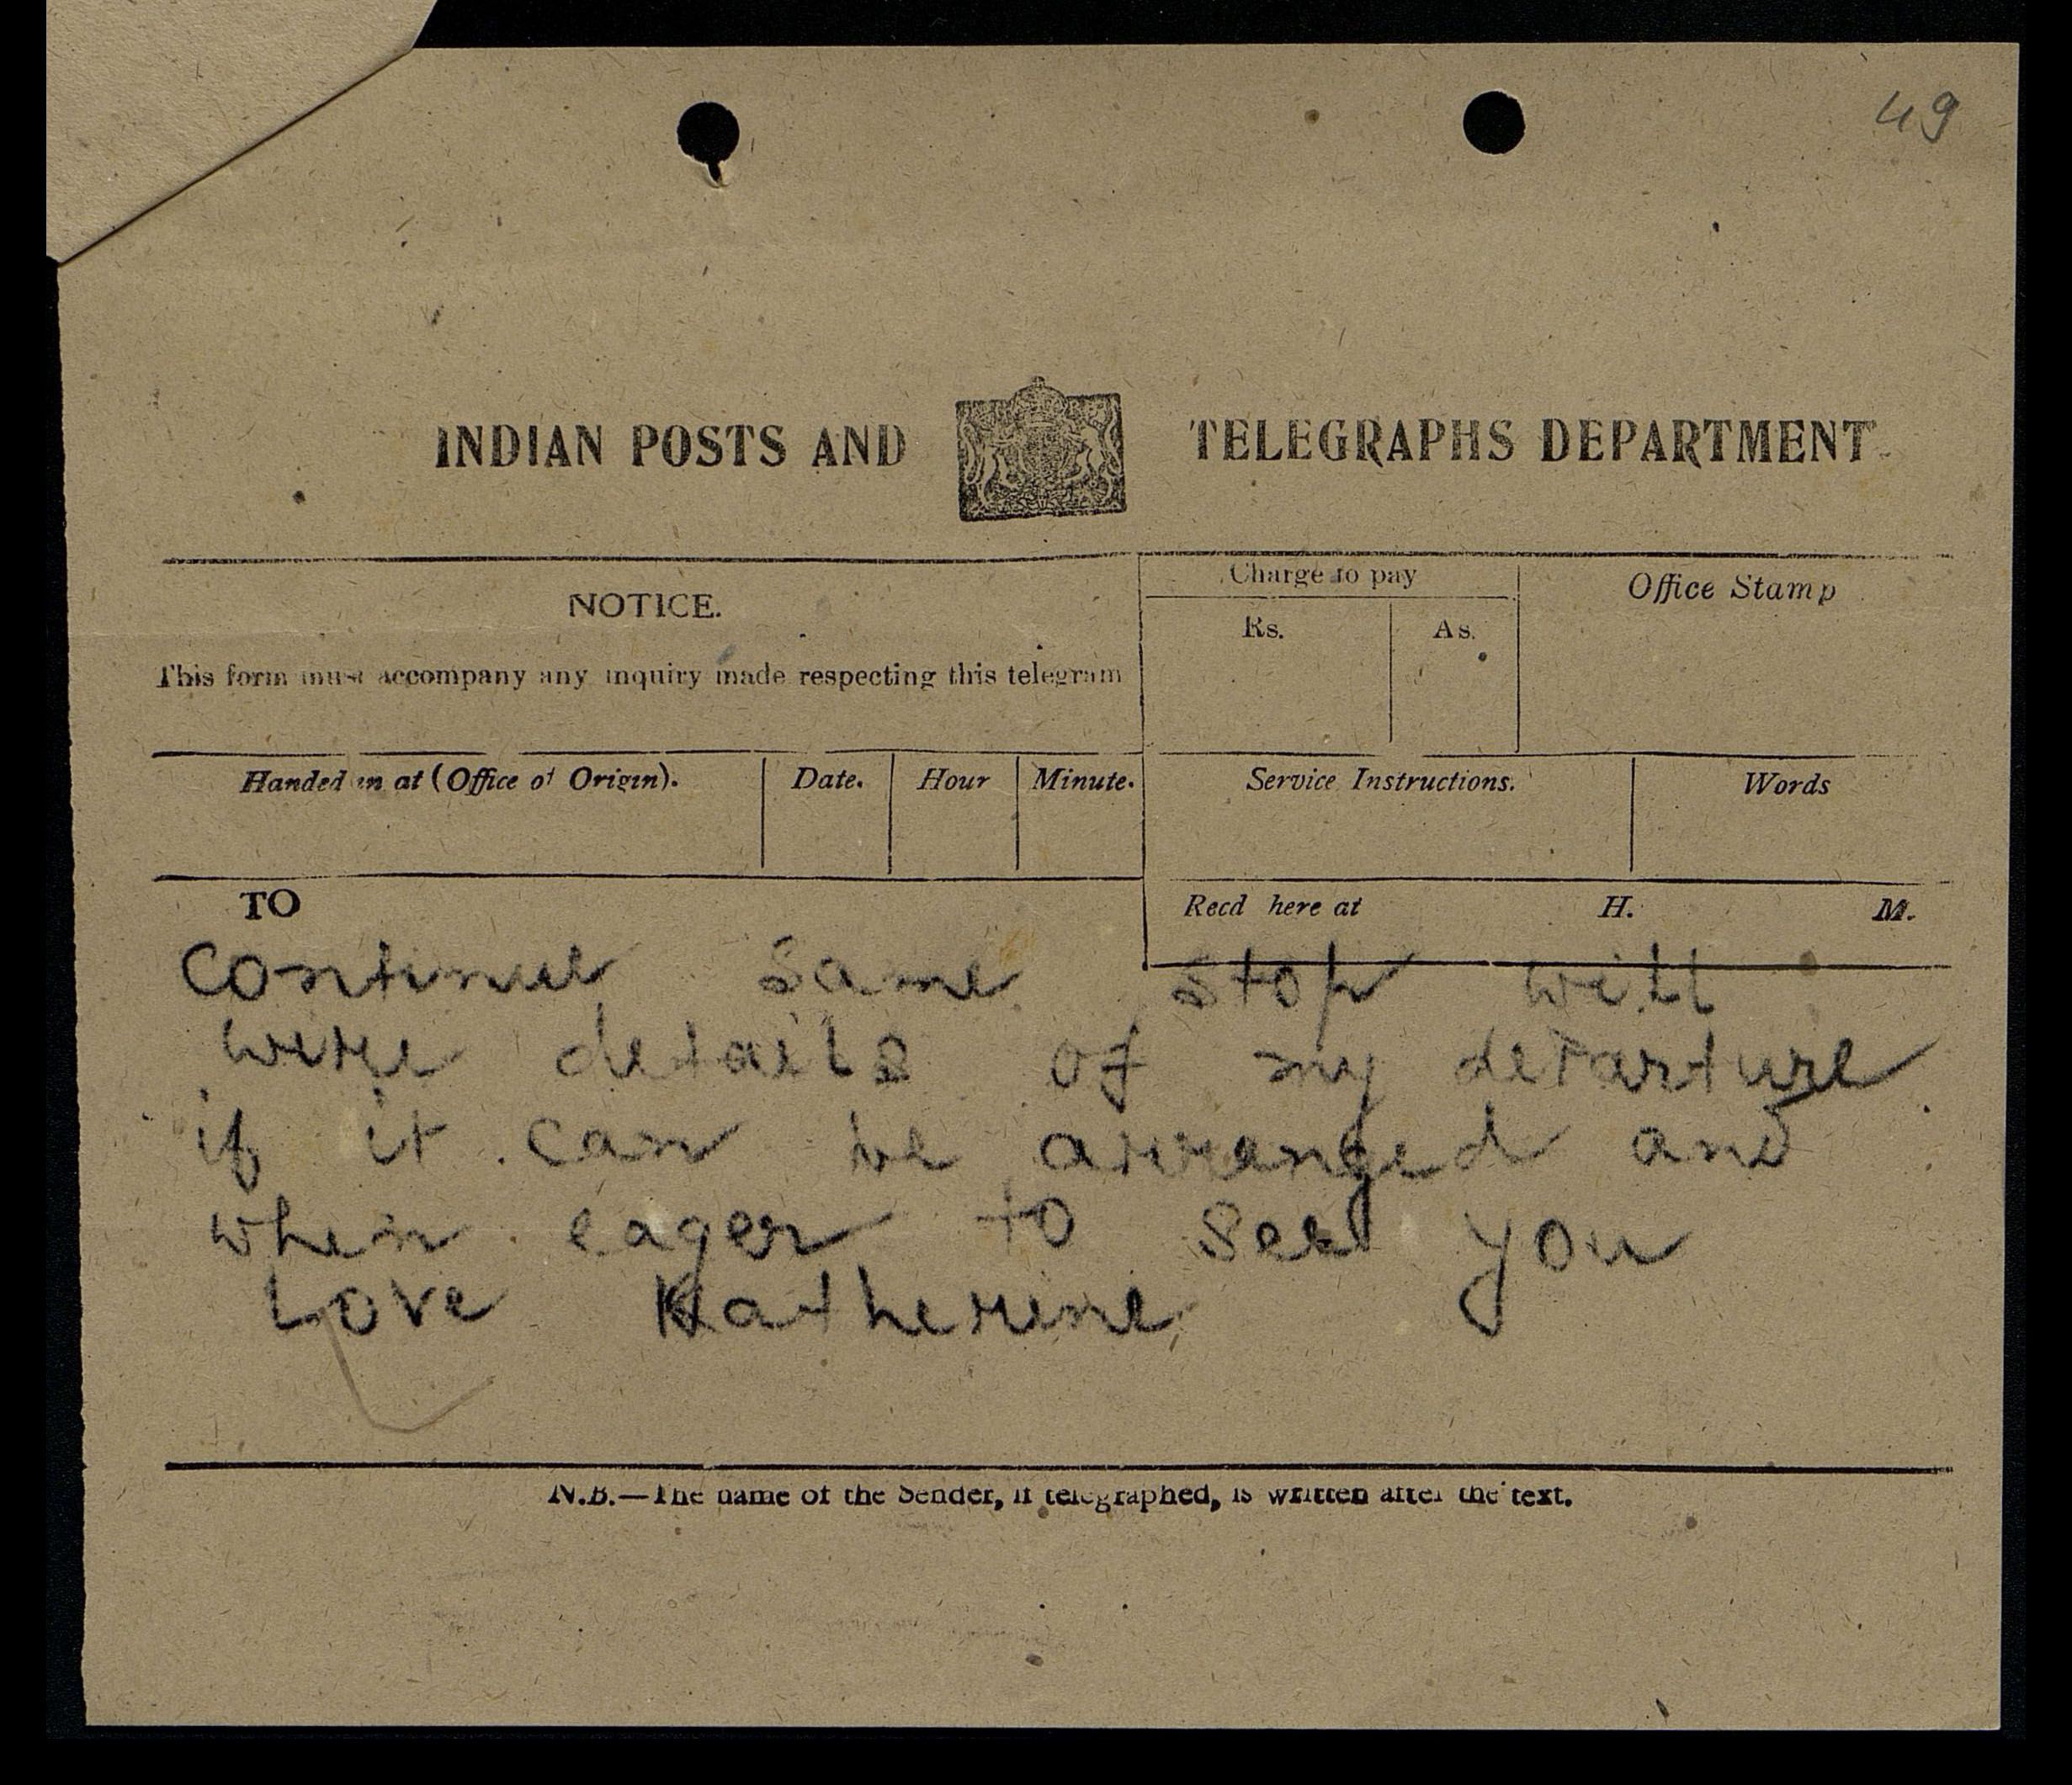 49
INDIAN POSTS AND TELEGRAPHS DEPARTMENT.
NOTICE.
This form must accompany any inquiry made respecting this telegram
Charge to pay
Rs. As.
Office Stamp
Handed in at (Office of Origin). Date. Hour Minute. Service Instructions. Words
TO
Recd here at H. M.
continue same stop will
wire details of my departure
if it can be arranged and
when eager to see you
Love Katherine
N.B.—The name of the Sender, if telegraphed, is written after the text.